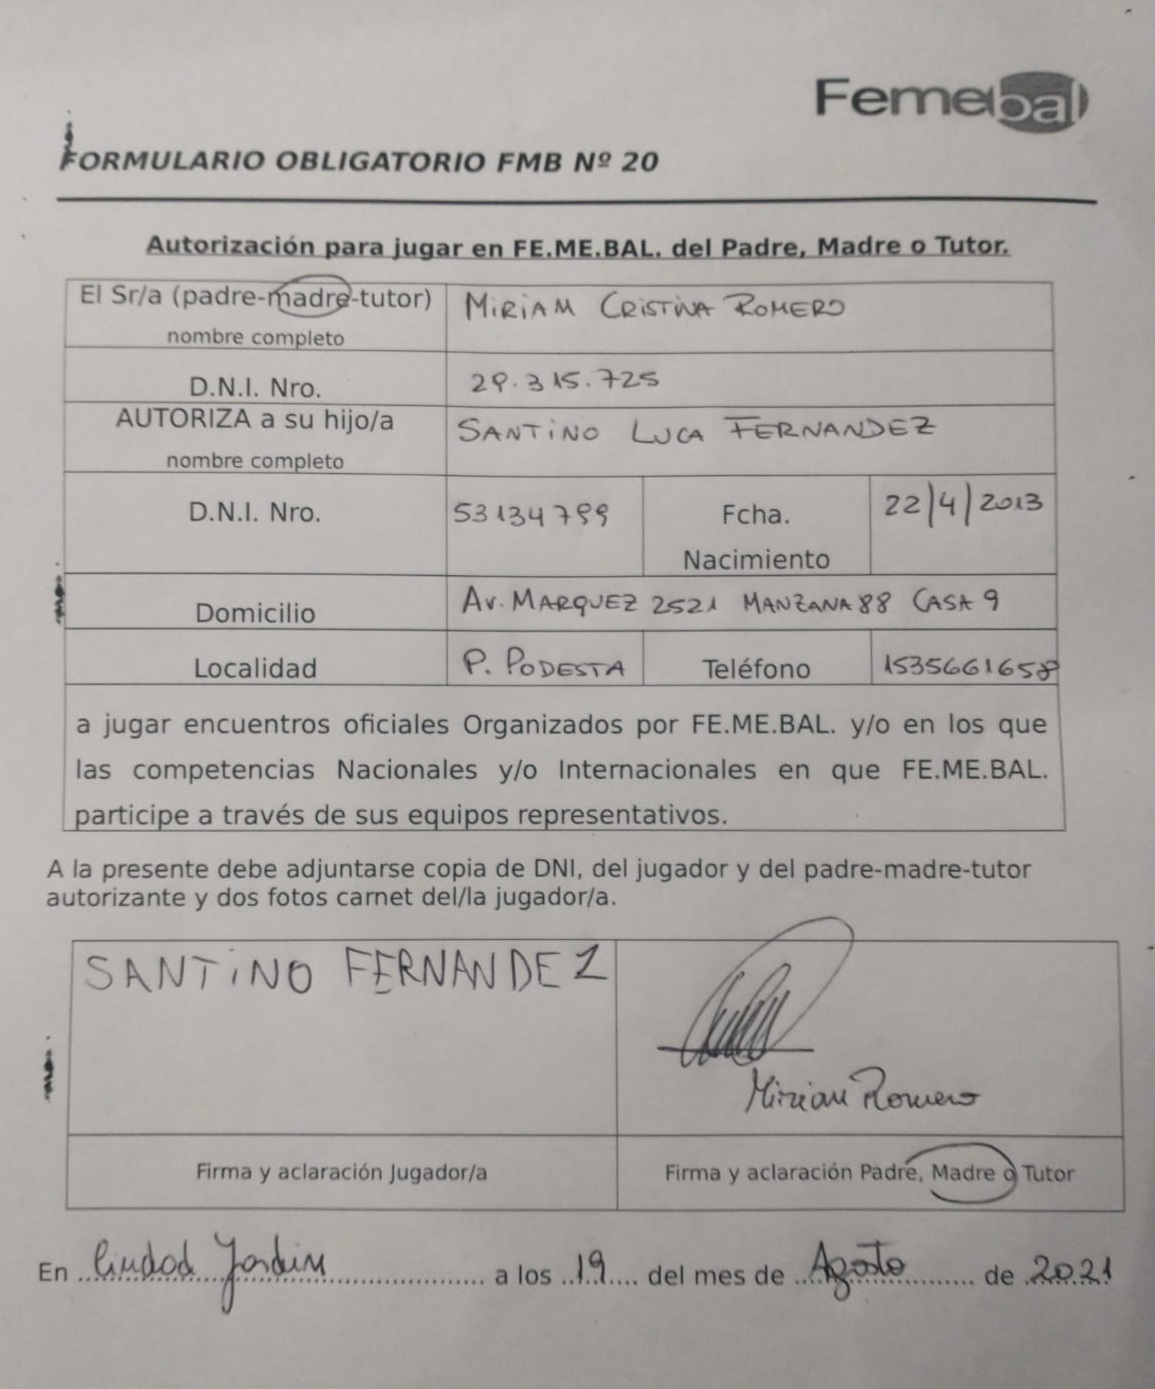 Femebal
FORMULARIO OBLIGATORIO FMB Nº 20
Autorización para jugar en FE.ME.BAL. del Padre, Madre o Tutor.
El Sr/a (padre-madre-tutor) MIRIAM CRISTINA ROMERO
nombre completo
D.N.I. Nro. 29.315.725
AUTORIZA a su hijo/a SANTINO LUCA FERNANDEZ
nombre completo
D.N.I. Nro. 53134799 Fcha. 22/4/2013
Nacimiento
Domicilio AV. MARQUEZ 2521 MANZANA 88 CASA 9
Localidad P. PODESTA Teléfono 1535661658
a jugar encuentros oficiales Organizados por FE.ME.BAL. y/o en los que
las competencias Nacionales y/o Internacionales en que FE.ME.BAL.
participe a través de sus equipos representativos.
A la presente debe adjuntarse copia de DNI, del jugador y del padre-madre-tutor
autorizante y dos fotos carnet del/la jugador/a.
SANTINO FERNANDEZ
Miriam Romero
Firma y aclaración Jugador/a Firma y aclaración Padre, Madre o Tutor
En Ciudad Jardin a los 19 del mes de Agosto de 2021